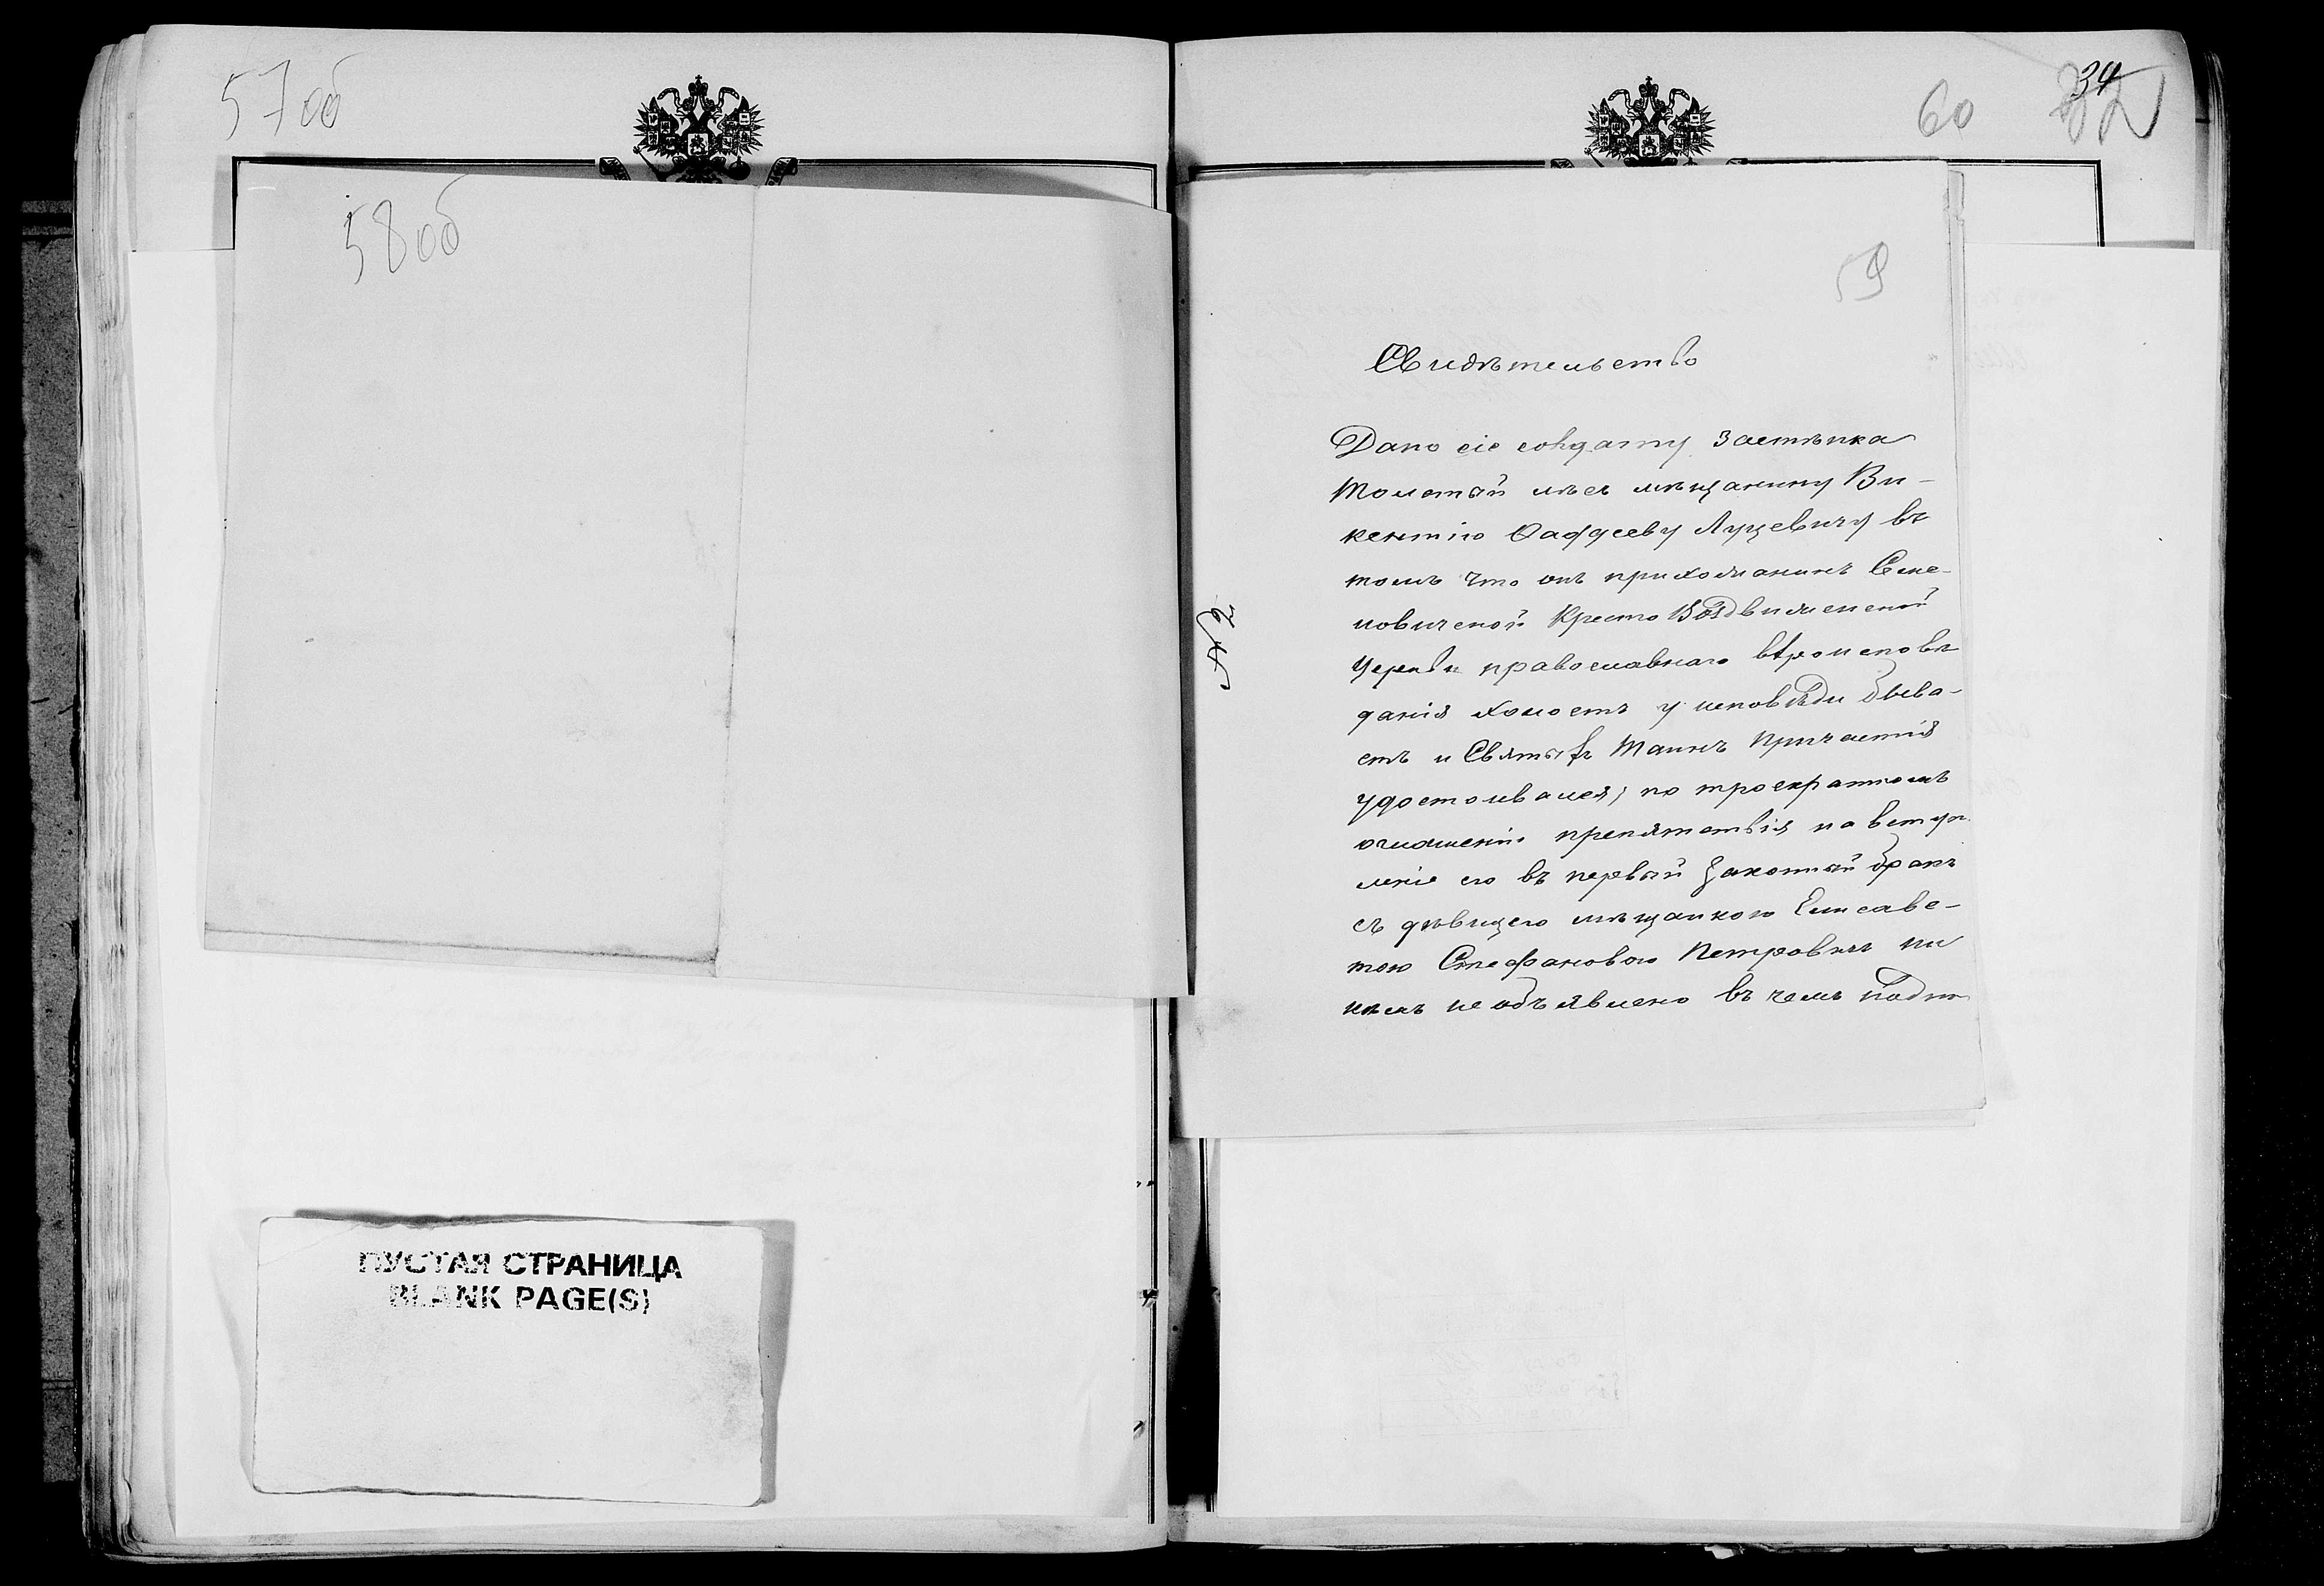 57об
58об
ПУСТАЯ СТРАНИЦА
BLANK PAGE(S)
60
34
59
№ 2
Свидѣтельство
Дано сіе солдату застѣнка
Толстый лѣсъ мѣщанину Ви-
кентію Фаддееву Луцевичу въ
томъ что онъ прихожанинъ Семе-
новичской Кресто Воздвиженской
Церкви православнаго вѣроисповѣ
данія холостъ у исповѣди быва-
етъ и Святыхъ Таинъ Причастія
удостоивался, по троекратномъ
оглашеніи препятствія на вступ
леніе его въ первый законный бракъ
съ дѣвицею мѣщанкою Елисаве-
тою Стефановою Петровичъ ни
кѣмъ не объявлено въ чемъ подпи